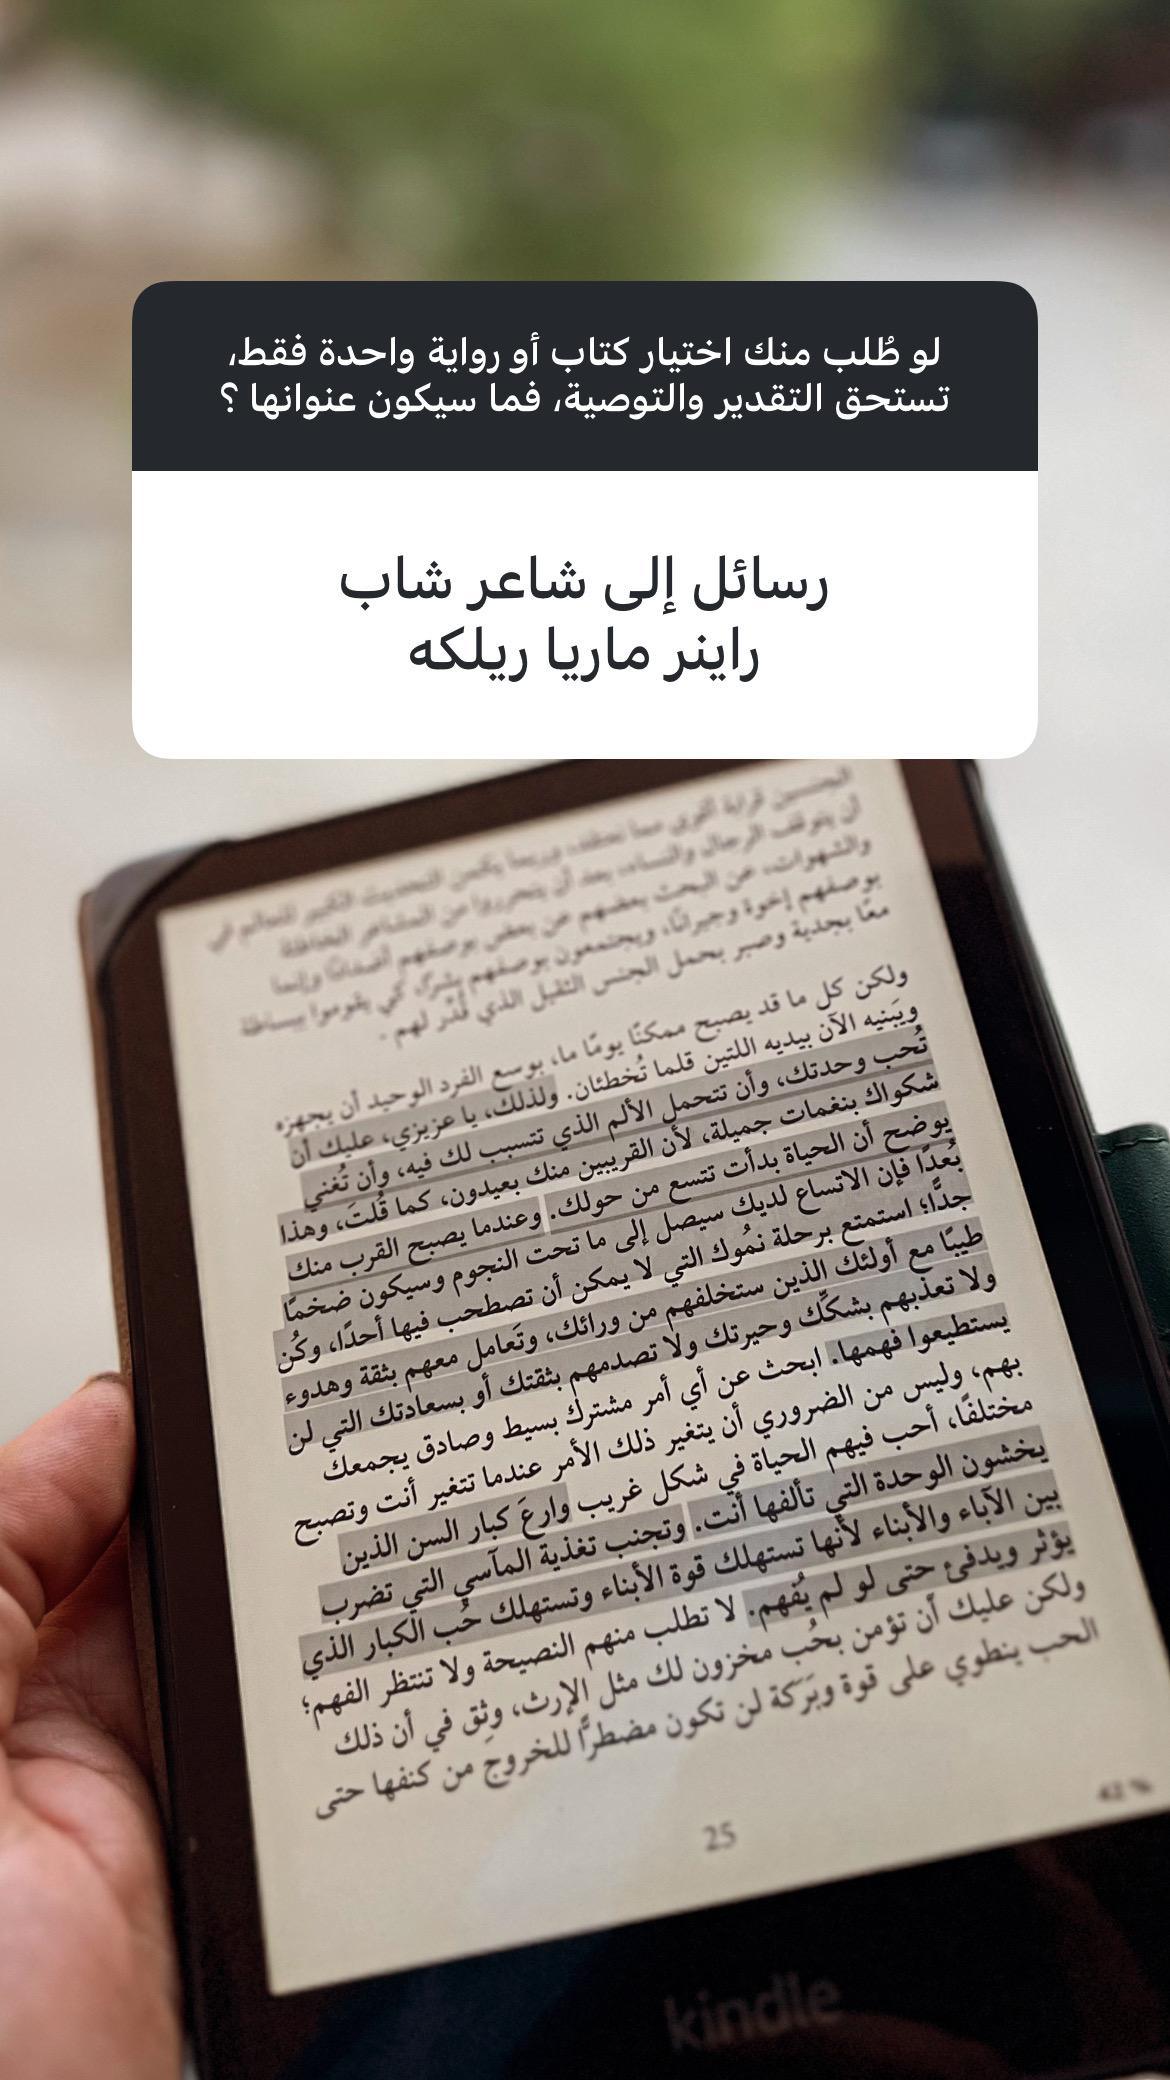 لو طُلب منك اختيار كتاب أو رواية واحدة فقط،
تستحق التقدير والتوصية، فما سيكون عنوانها ؟
رسائل إلى شاعر شاب
راينر ماريا ريلكه
الجنسين قرابة أقوى مما نعتقد، وربما يكمن التجديد الكبير للعالم في
أن يتوقف الرجال والنساء، بعد أن يتحرروا من المشاعر الخاطئة
والشهوات، عن البحث بعضهم عن بعض بوصفهم أضدادًا وإنما
بوصفهم إخوة وجيرانًا، ويجتمعون بوصفهم بشرًا، كي يقوموا ببساطة
معًا بجدية وصبر بحمل الجنس الثقيل الذي قُدّر لهم .
ولكن كل ما قد يصبح ممكنًا يومًا ما، بوسع الفرد الوحيد أن يجهزه
ويَبنيه الآن بيديه اللتين قلما تُخطئان. ولذلك، يا عزيزي، عليك أن
تُحب وحدتك، وأن تتحمل الألم الذي تتسبب لك فيه، وأن تُغني
شكواك بنغمات جميلة، لأن القريبين منك بعيدون، كما قُلتَ، وهذا
يوضح أن الحياة بدأت تتسع من حولك. وعندما يصبح القرب منك
بُعدًا فإن الاتساع لديك سيصل إلى ما تحت النجوم وسيكون ضخمًا
جدًّا؛ استمتع برحلة نمُوك التي لا يمكن أن تصطحب فيها أحدًا، وكُن
طيبًا مع أولئك الذين ستخلفهم من ورائك، وتَعامل معهم بثقة وهدوء
ولا تعذبهم بشكِّك وحيرتك ولا تصدمهم بثقتك أو بسعادتك التي لن
يستطيعوا فهمها. ابحث عن أي أمر مشترك بسيط وصادق يجمعك
بهم، وليس من الضروري أن يتغير ذلك الأمر عندما تتغير أنت وتصبح
مختلفًا، أحب فيهم الحياة في شكل غريب وارعَ كبار السن الذين
يخشون الوحدة التي تألفها أنت. وتجنب تغذية المآسي التي تضرب
بين الآباء والأبناء لأنها تستهلك قوة الأبناء وتستهلك حُب الكبار الذي
يؤثر ويدفئ حتى لو لم يُفهم. لا تطلب منهم النصيحة ولا تنتظر الفهم؛
ولكن عليك أن تؤمن بحُب مخزون لك مثل الإرث، وثِق في أن ذلك
الحب ينطوي على قوة وبَرَكة لن تكون مضطرًّا للخروج من كنفها حتى
25
42 %
kindle